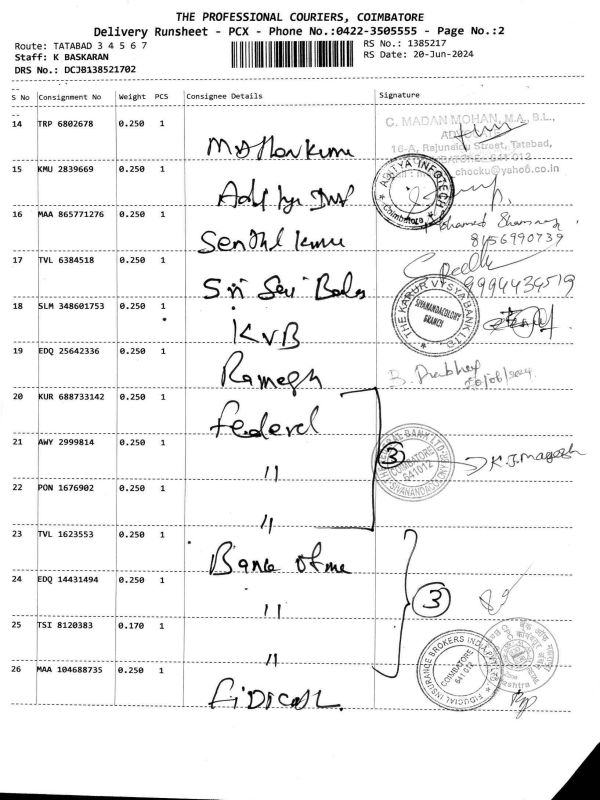 THE PROFESSIONAL COURIERS, COIMBATORE
Delivery Runsheet - PCX - Phone No.:0422-3505555 - Page No.:2
Route: TATABAD 3 4 5 6 7
RS No.: 1385217
Staff: K BASKARAN
RS Date: 20-Jun-2024
DRS No.: DCJB138521702
S No Consignment No Weight PCS Consignee Details Signature
14 TRP 6802678 0.250 1
C. MADAN MOHAN, M.A., B.L.,
16-A, Rajunaidu Street, Tatabad,
chocku@yahoo.co.in
15 KMU 2839669 0.250 1
ADITYA INFOTECH
Coimbatore
16 MAA 865771276 0.250 1 Senthil kumar
8156990739
17 TVL 6384518 0.250 1 Sri Sai Bala
9994434519
18 SLM 348601753 0.250 1 KVB
THE KARUR VYSYA BANK LTD
SIVANANDACOLONY
BRANCH
19 EDQ 25642336 0.250 1 Ramesh
B. Prabhu
20/06/2024
20 KUR 688733142 0.250 1 Federal
21 AWY 2999814 0.250 1 "
3
COIMBATORE
641012
K.J.Magesh
22 PON 1676902 0.250 1 "
23 TVL 1623553 0.250 1
24 EDQ 14431494 0.250 1 "
3
25 TSI 8120383 0.170 1 "
FIDUCIAL INSURANCE BROKERS INDIA PVT LTD
COIMBATORE
641 012
26 MAA 104688735 0.250 1